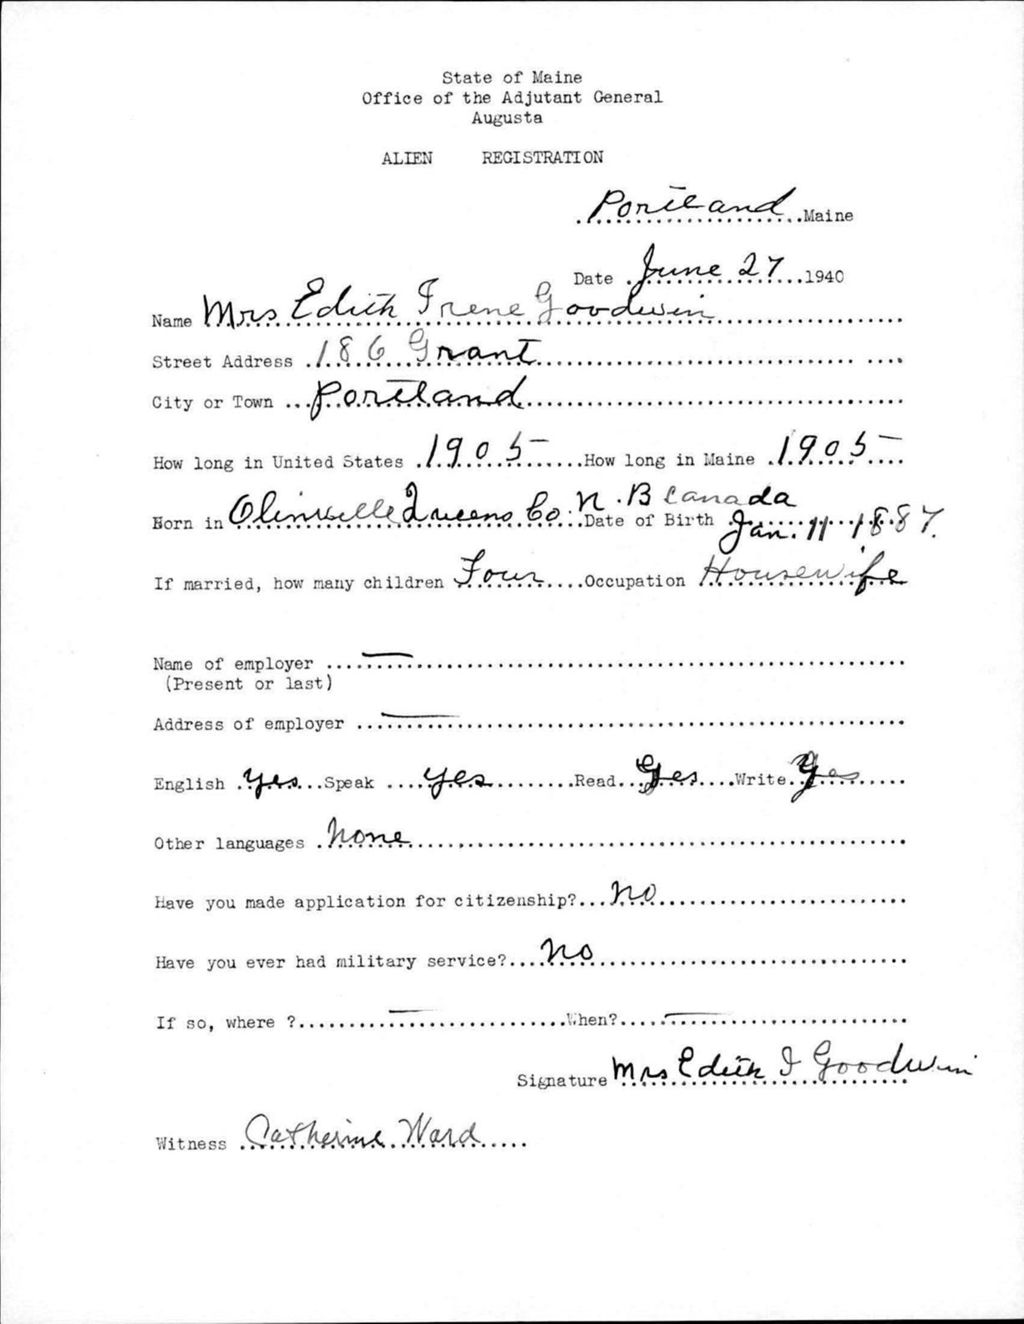 State of Maine
Office of the Adjutant General
Augusta
ALIEN REGISTRATION
Portland Maine
Date June 27 1940
Name Mrs Edith Irene Goodwin
Street Address 186 Grant
City or Town Portland
How long in United States 1905 How long in Maine 1905
Born in Olinville Queens Co. N.B Canada Date of Birth Jan. 11 1887.
If married, how many children Four Occupation Housewife
Name of employer
(Present or last)
Address of employer
English Yes Speak Yes Read Yes Write Yes
Other languages None
Have you made application for citizenship? No
Have you ever had military service? No
If so, where ? When?
Signature Mrs Edith I Goodwin
Witness Catherine Ward